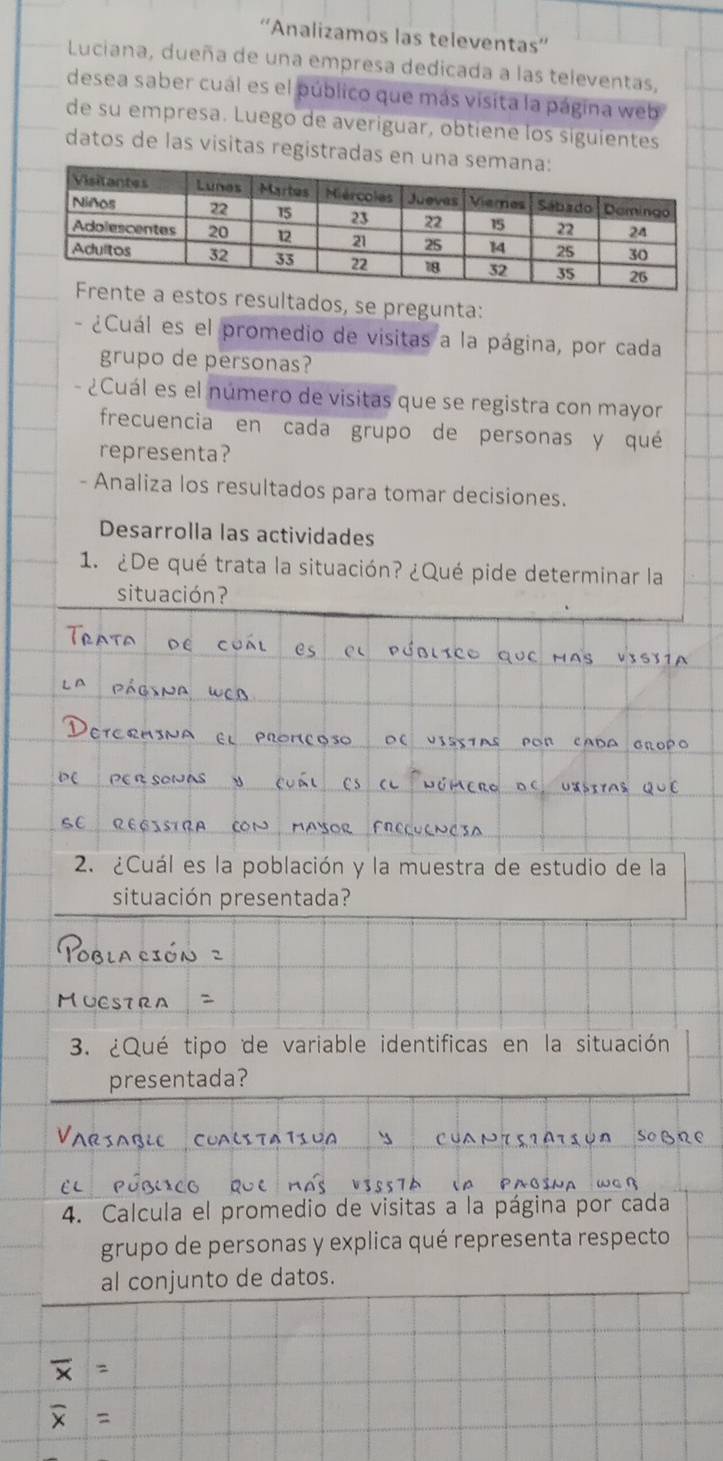 "Analizamos las televentas"
Luciana, dueña de una empresa dedicada a las televentas,
desea saber cuál es el público que más visita la página web
de su empresa. Luego de averiguar, obtiene los siguientes
datos de las visitas registradas en una semana:
Visitantes Lunes Martes Miércoles Jueves Viernes Sábado Domingo
Niños 22 15 23 22 15 22 24
Adolescentes 20 12 21 25 14 25 30
Adultos 32 33 22 18 32 35 26
Frente a estos resultados, se pregunta:
- ¿Cuál es el promedio de visitas a la página, por cada
grupo de personas?
- ¿Cuál es el número de visitas que se registra con mayor
frecuencia en cada grupo de personas y qué
representa?
- Analiza los resultados para tomar decisiones.
Desarrolla las actividades
1. ¿De qué trata la situación? ¿Qué pide determinar la
situación?
TRATA DE CUÁL ES EL PÚBLICO QUE MAS VISITA
LA PÁGINA WEB
DETERMINA EL PROMEDIO DE VISITAS POR CADA GRUPO
DE PERSONAS Y CUÁL ES EL NÚMERO DE VISITAS QUE
SE REGISTRA CON MAYOR FRECUENCIA
2. ¿Cuál es la población y la muestra de estudio de la
situación presentada?
POBLACIÓN =
MUESTRA =
3. ¿Qué tipo de variable identificas en la situación
presentada?
VARIABLE CUALITATIVA Y CUANTITATIVA SOBRE
EL PÚBLICO QUE MÁS VISITA LA PAGINA WEB
4. Calcula el promedio de visitas a la página por cada
grupo de personas y explica qué representa respecto
al conjunto de datos.
x̅ =
x̅ =